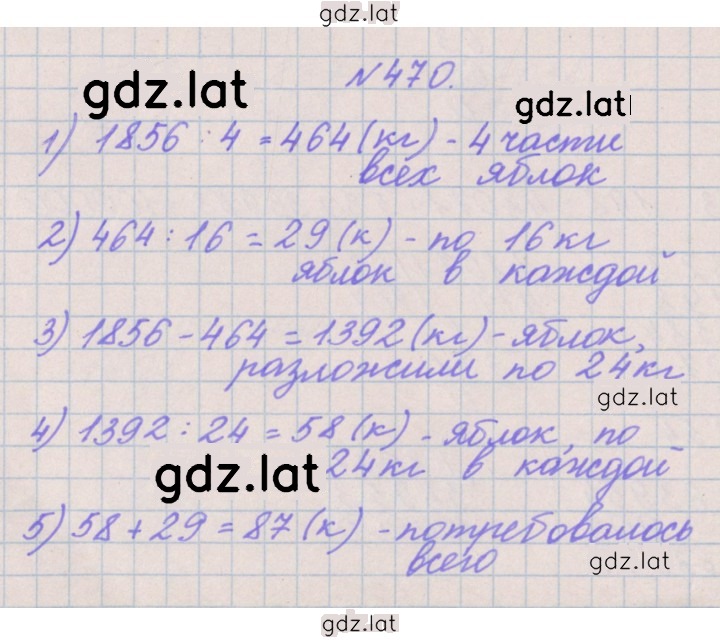 gdz.lat
№470.
gdz.lat
gdz.lat
1) 1856 : 4 = 464 (кг) - 4 части
всех яблок
2) 464 : 16 = 29 (к) - по 16 кг
яблок в каждой
3) 1856 - 464 = 1392 (кг) - яблок,
разложили по 24 кг
gdz.lat
4) 1392 : 24 = 58 (к) - яблок, по
24 кг в каждой
gdz.lat
5) 58 + 29 = 87 (к) - потребовалось
всего
gdz.lat
gdz.lat